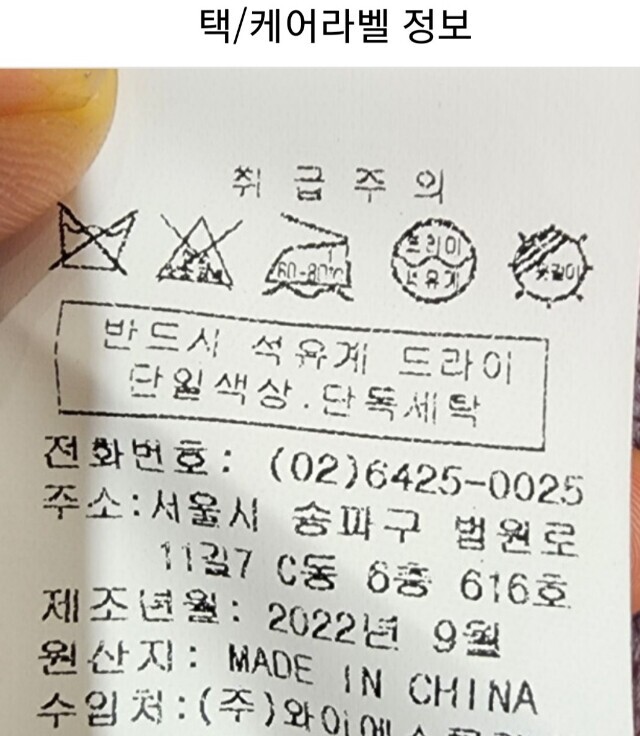 택/케어라벨 정보
취급주의
60-80℃
드라이
석유계
옷걸이
반드시 석유계 드라이
단일색상.단독세탁
전화번호: (02)6425-0025
주소:서울시 송파구 법원로
11길7 C동 6층 616호
제조년월: 2022년 9월
원산지: MADE IN CHINA
수입처:(주)와이에스